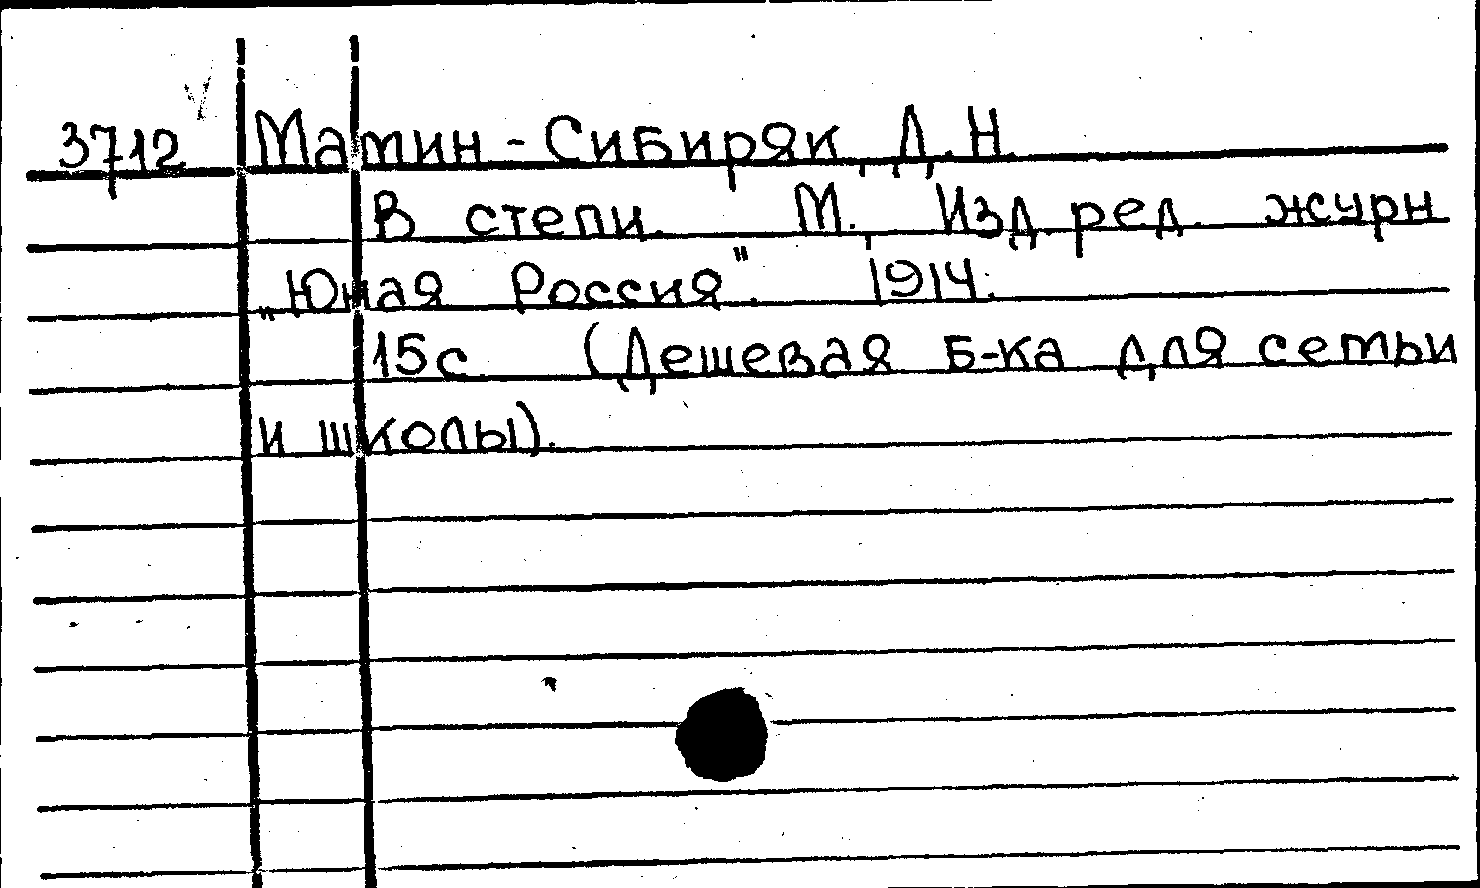 3712 Мамин-Сибиряк, Д.Н.
В степи. М., Изд. ред. журн
„Юная Россия". 1914.
15с. (Дешевая б-ка для семьи
и школы).